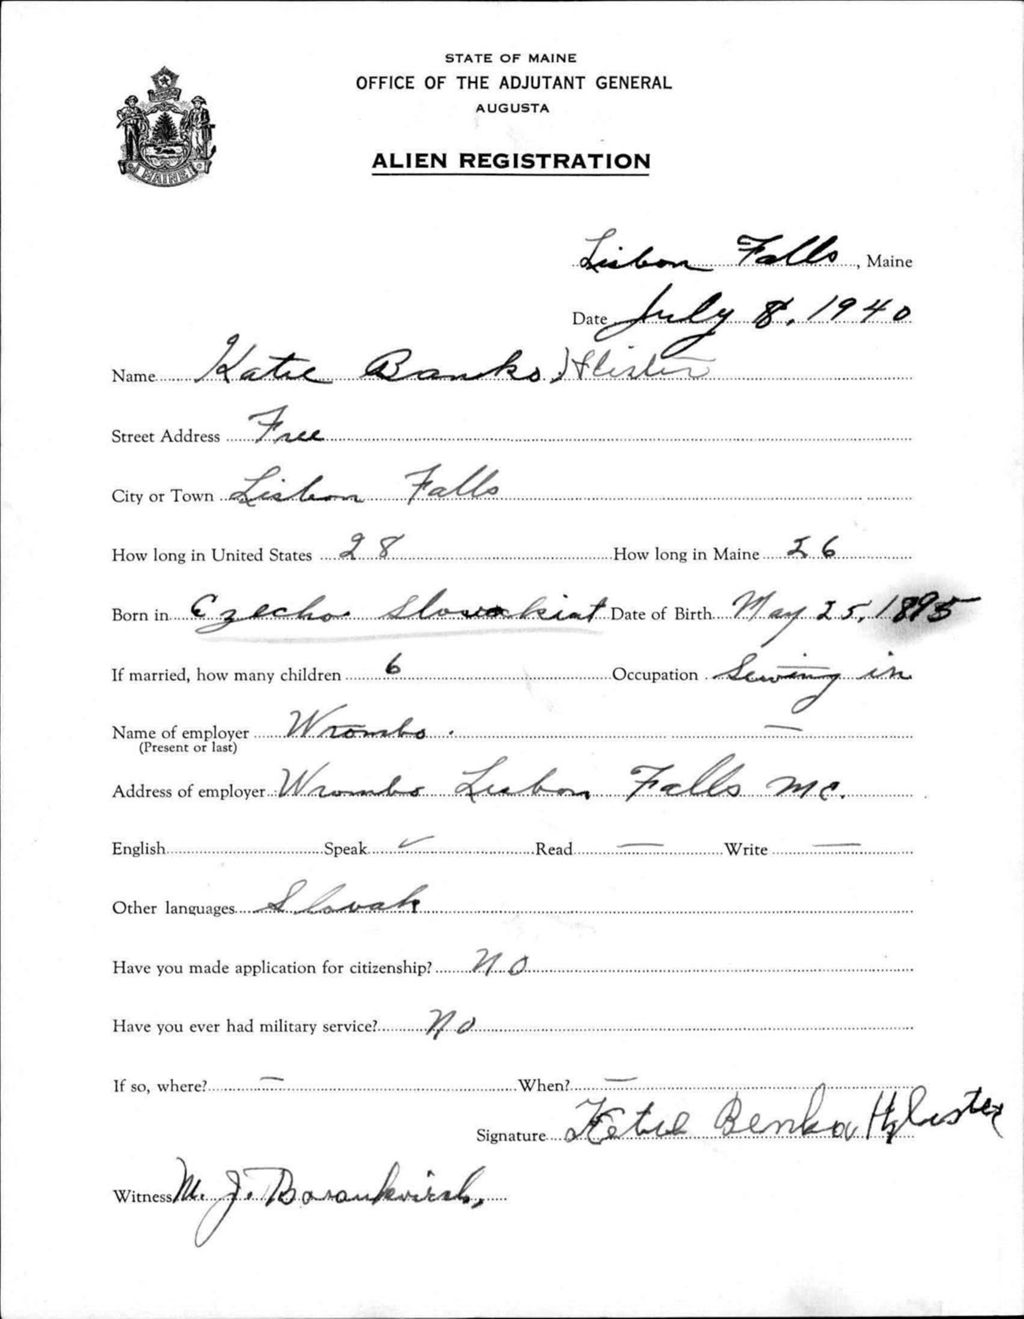 STATE OF MAINE
OFFICE OF THE ADJUTANT GENERAL
AUGUSTA
ALIEN REGISTRATION
MAINE
Lisbon Falls, Maine
Date July 8, 1940
Name Katie Banks Hlister
Street Address Free
City or Town Lisbon Falls
How long in United States 28 How long in Maine 26
Born in Czecho Slovakia Date of Birth May 25, 1895
If married, how many children 6 Occupation Sewing in
Name of employer Wrombo. —
(Present or last)
Address of employer Wrombo Lisbon Falls Me.
English Speak ✓ Read — Write —
Other languages Slovak
Have you made application for citizenship? No
Have you ever had military service? No
If so, where? — When? —
Signature Katie Benka
Witness M. J.